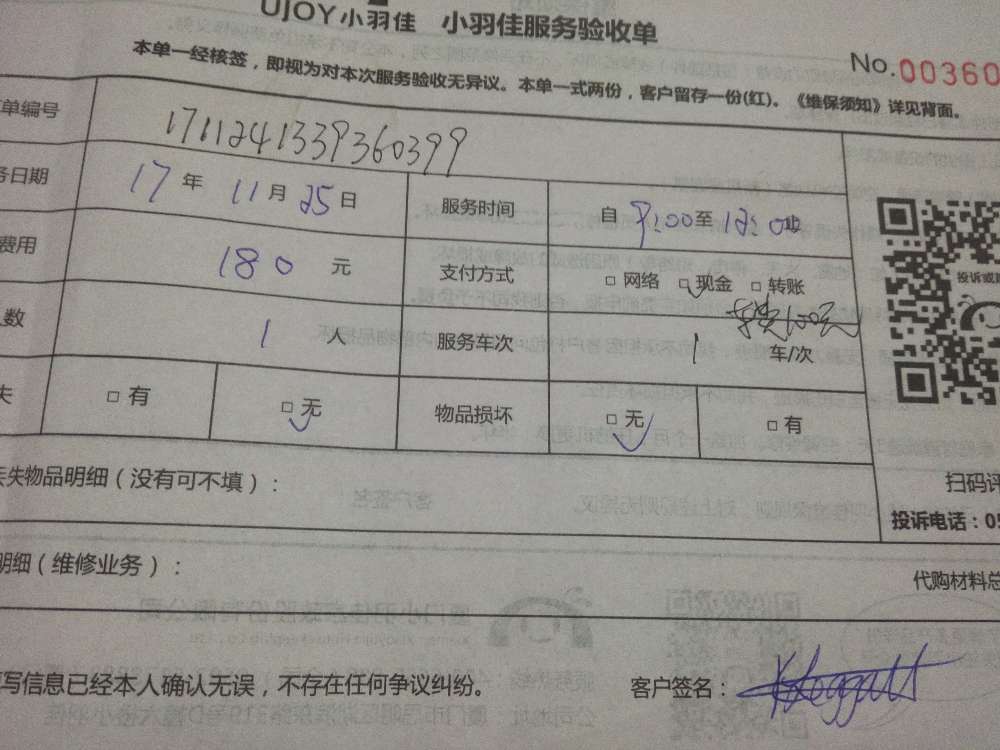 UJOY小羽佳 小羽佳服务验收单
No.00360
本单一经核签，即视为对本次服务验收无异议。本单一式两份，客户留存一份(红)。《维保须知》详见背面。
单编号 1711241339360399
务日期 17年 11月 25日 服务时间 自 9:00至 12:0
费用 180 元 支付方式 □ 网络 □ 现金 □ 转账
车费100元
人数 1 人 服务车次 1 车/次
失 □ 有 □ 无 物品损坏 □ 无 □ 有
投诉或
丢失物品明细（没有可不填）：
扫码评
投诉电话：05
明细（维修业务）：
代购材料总
填写信息已经本人确认无误，不存在任何争议纠纷。 客户签名：